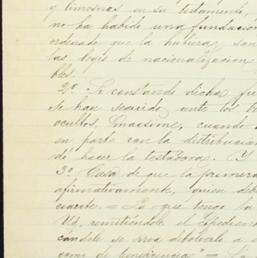 y limosnas en su testamento,
no ha habido una fundación
ordenado que la hubiera, son
las leyes de nacionalización
bles.
2º. Si constando dicha
se han seguido, ante los
ocultos, máxime, cuando
en parte con la distribución
de hacer la testadora. Y
3º Caso de que la primera
afirmativamente, quien debe
ciarle = Lo que tengo la
Ud, remitiéndole el expediente
cándole se sirva debolverlo a